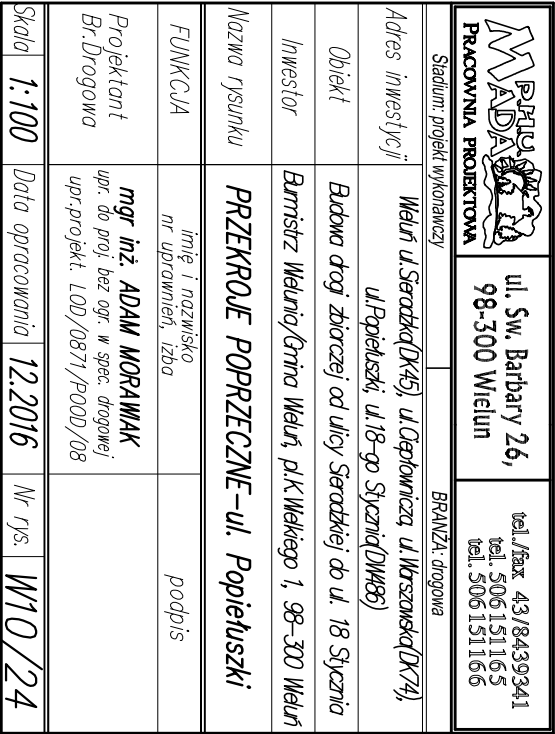 P.H.U.
MADA
PRACOWNIA PROJEKTOWA
ul. Sw. Barbary 26,
98-300 Wielun
tel./fax 43/8439341
tel. 506151165
tel. 506151166
Stadium: projekt wykonawczy
BRANŻA: drogowa
Adres inwestycji
Wieluń ul.Sieradzka(DK45), ul.Ciepłownicza, ul.Warszawska(DK74),
ul.Popiełuszki, ul.18-go Stycznia(DW486)
Obiekt
Budowa drogi zbiorczej od ulicy Sieradzkiej do ul. 18 Stycznia
Inwestor
Burmistrz Wielunia/Gmina Wieluń, pl.K.Wielkiego 1, 98-300 Wieluń
Nazwa rysunku
PRZEKROJE POPRZECZNE-ul. Popiełuszki
FUNKCJA
imię i nazwisko
nr uprawnień, izba
podpis
Projektant
Br.Drogowa
mgr inż ADAM MORAWIAK
upr. do proj. bez ogr. w spec. drogowej
upr.projekt. LOD/0871/POOD/08
Skala
1:100
Data opracowania
12.2016
Nr rys.
W10/24